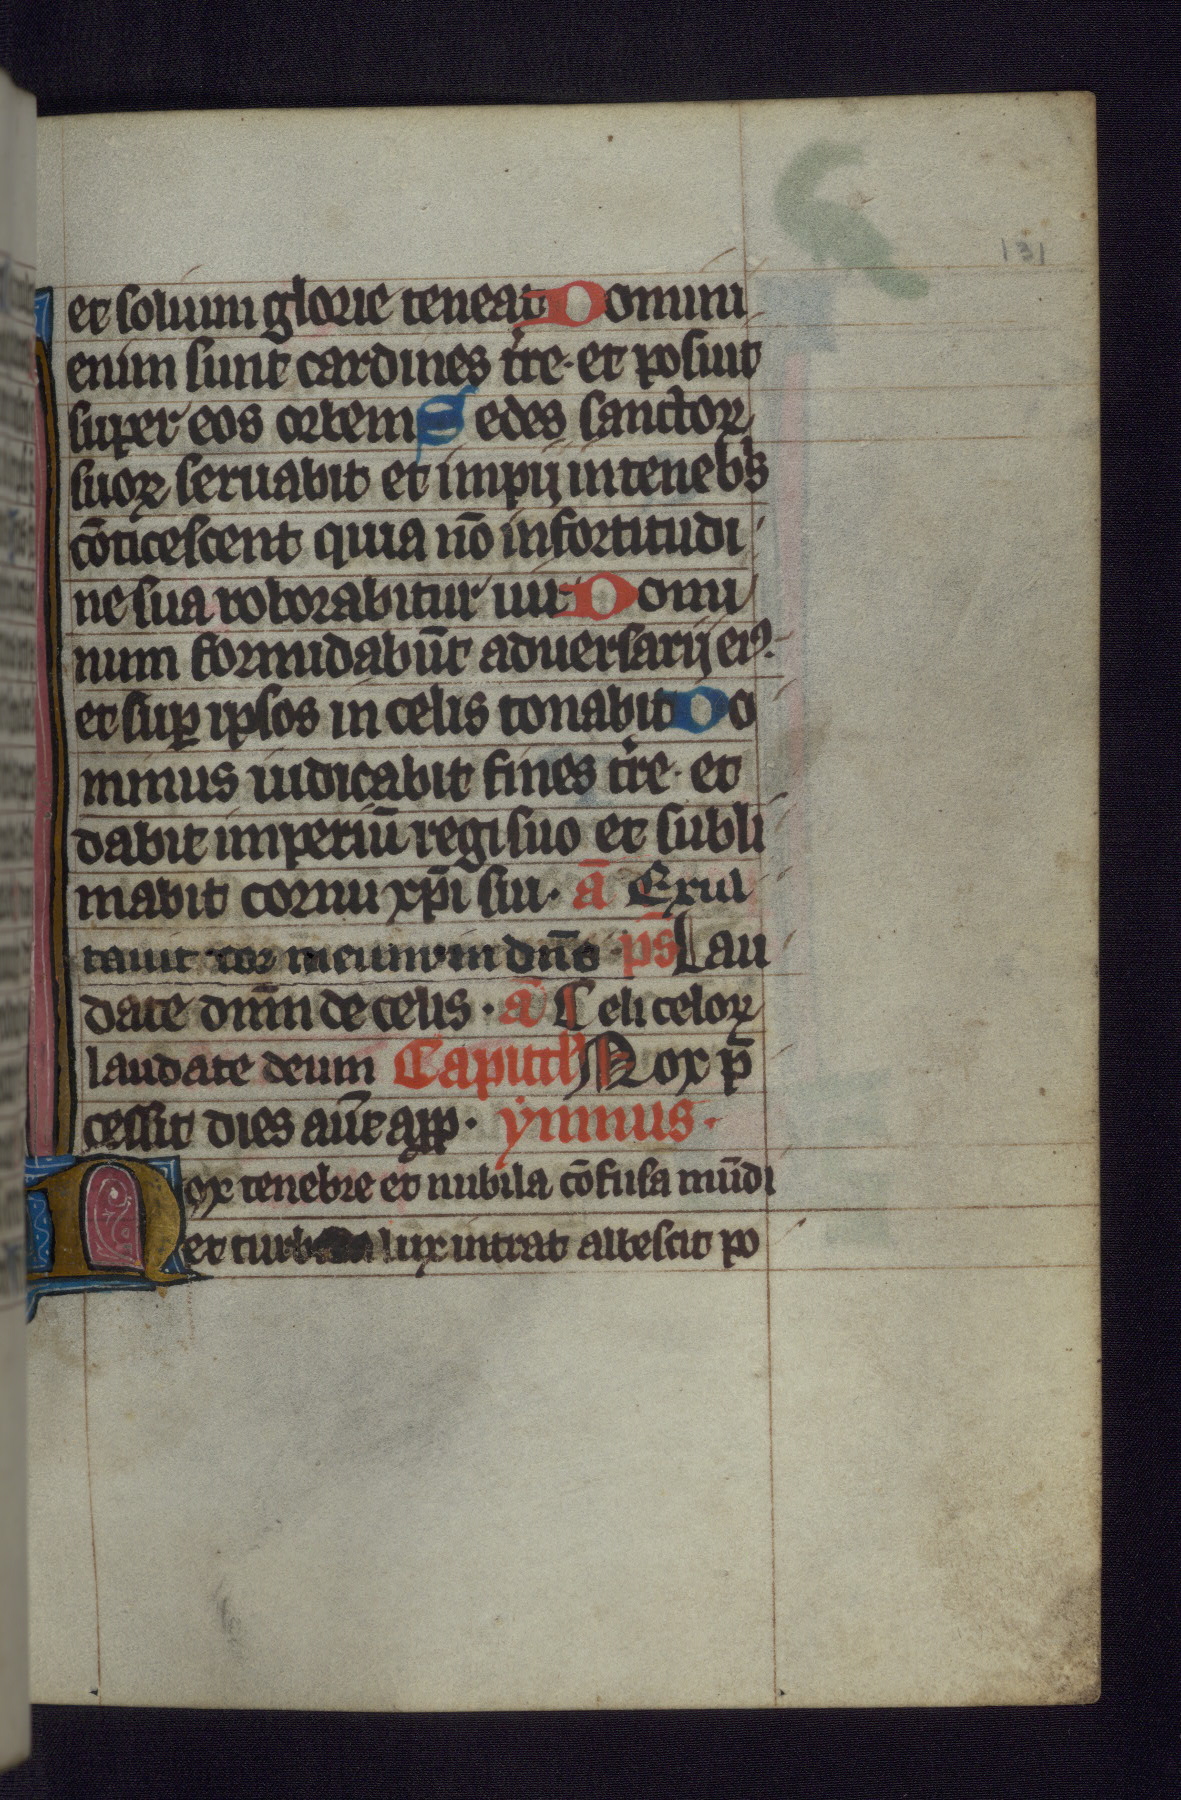 131
et solium glorie teneat Domini
enim sunt cardines t̄re · et posuit
super eos orbem Sedes sanctoꝝ
suoꝝ seruabit et impij in tenebˢ
cōticescent quia nō in fortitudi
ne sua roborabitur uir Domi
num formidabūt aduersarij eiꝰ ·
et suꝑ ipsos in celis tonabit Do
minus iudicabit fines t̄re · et
dabit imperiū regi suo et subli
mabit cornu xp̄i sui · ā Exul
tauit cor meum in dn̄o · ps̄ Lau
date dn̄m de celis · ā Celi celoꝝ
laudate deum Capitl̄ Nox p̄
cessit dies aūt app · ymnus ·
Nox tenebre et nubila cōfusa mūdi
et turbida lux intrat albescit po